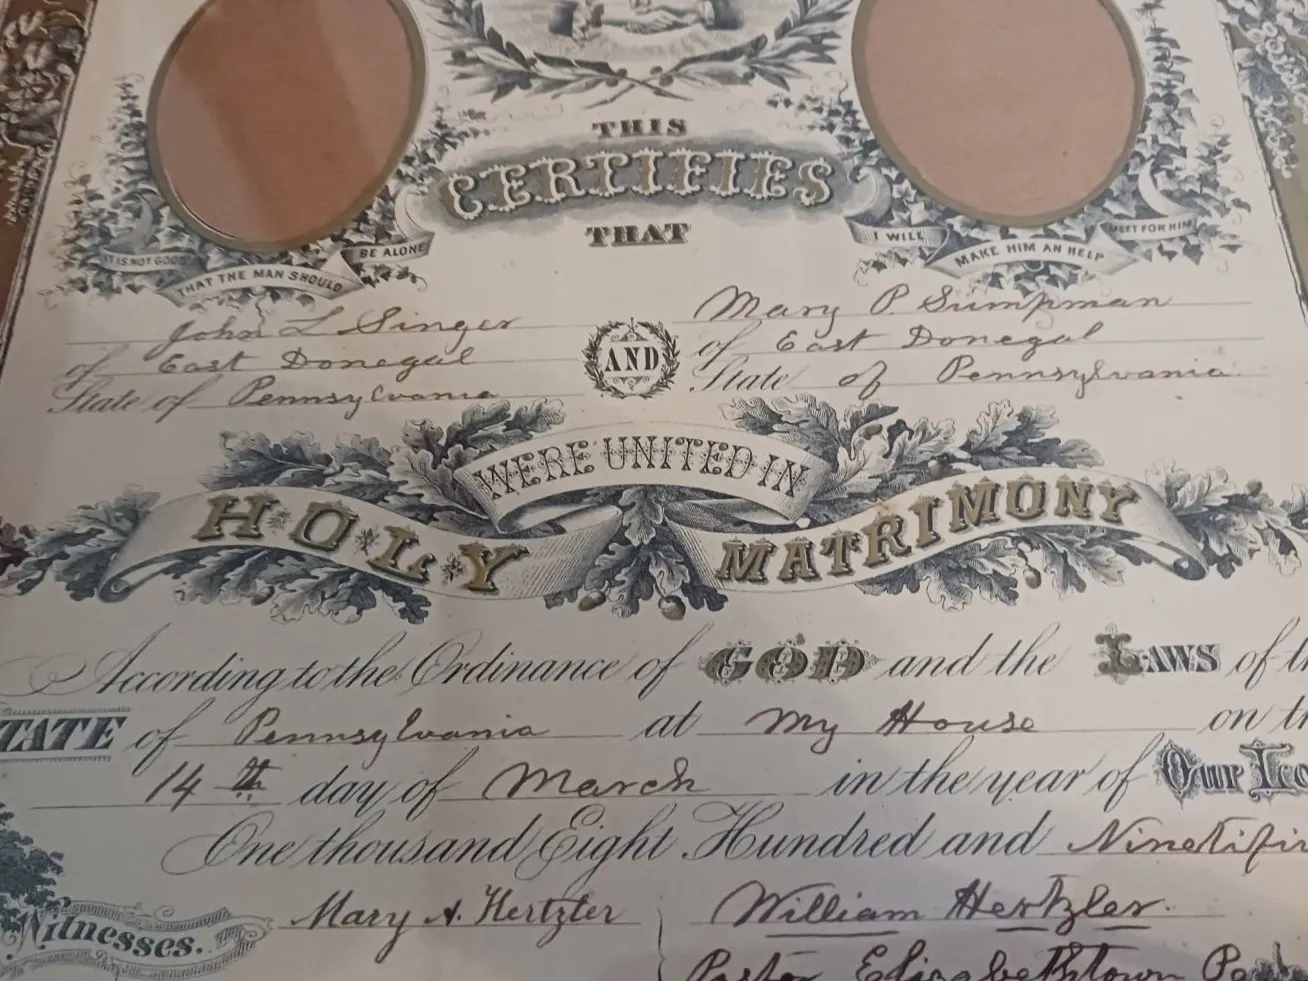 THIS
CERTIFIES
THAT
IT IS NOT GOOD THAT THE MAN SHOULD BE ALONE
I WILL MAKE HIM AN HELP MEET FOR HIM
John L Singer
of East Donegal
State of Pennsylvania
AND
Mary P. Sumpman
of East Donegal
State of Pennsylvania
WERE UNITED IN
HOLY MATRIMONY
According to the Ordinance of GOD and the LAWS of
TATE of Pennsylvania at My House on
14th day of March in the year of Our
One thousand Eight Hundred and Ninetifir
Witnesses.
Mary A. Hertzler
William Hertzler.
Pastor Elizabethtown Pa